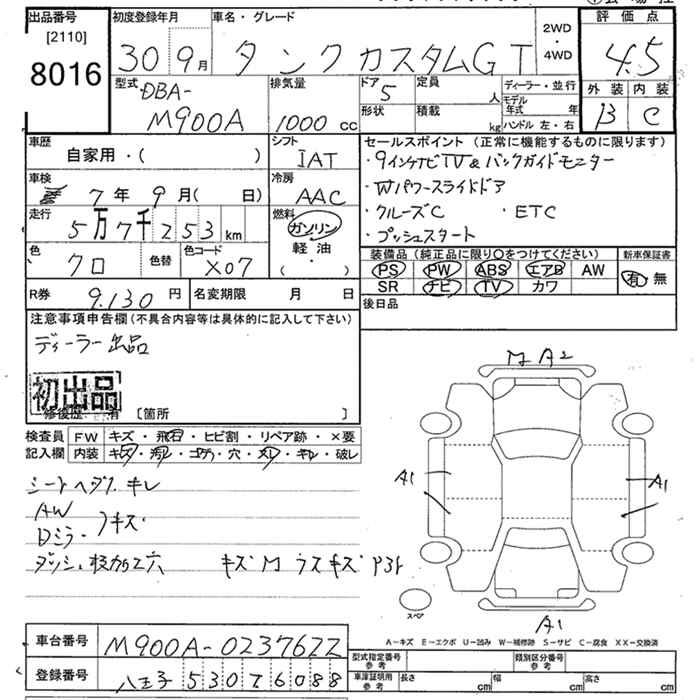 出品番号
[2110]
8016
初度登録年月
30 9月
車名・グレード
タンクカスタムGT
2WD
・
4WD
評価点
4.5
外装 内装
B C
型式
DBA-
M900A
排気量
1000 cc
ドア
5
定員
人
形状
積載
kg
ディーラー・並行
モデル年式 年
ハンドル 左・右
車歴
自家用・( )
シフト
IAT
車検
7年9月( 日)
冷房
AAC
走行
5万7千253km
燃料
ガソリン
・
軽油
・
( )
色
クロ
色替
色コード
X07
R券
9.130円
名変期限 月 日
セールスポイント(正常に機能するものに限ります)
・9インチナビTV&バックガイドモニター
・Wパワースライドドア
・クルーズC ・ETC
・プッシュスタート
装備品(純正品に限り○をつけてください)
PS PW ABS エアB AW
SR ナビ TV カワ
新車保証書
有・無
後日品
注意事項申告欄(不具合内容等は具体的に記入して下さい)
ディーラー出品
初出品
修復歴 有 [箇所 ]
検査員
記入欄
FW キズ・飛石・ヒビ割・リペア跡・×要
内装 キズ・汚れ・コゲ・穴・スレ・キレ・破レ
シートヘタリ キレ
AW
Dミラー キズ
M A2
A1
A1
A1
スペア
A-キズ E-エクボ U-凹み W-補修跡 S-サビ C-腐食 XX-交換済
車台番号
M900A-0237622
登録番号
八王子 530 7 6088
型式指定番号
参考
類別区分番号
参考
車庫証明用
参考
長さ cm
幅 cm
高さ cm